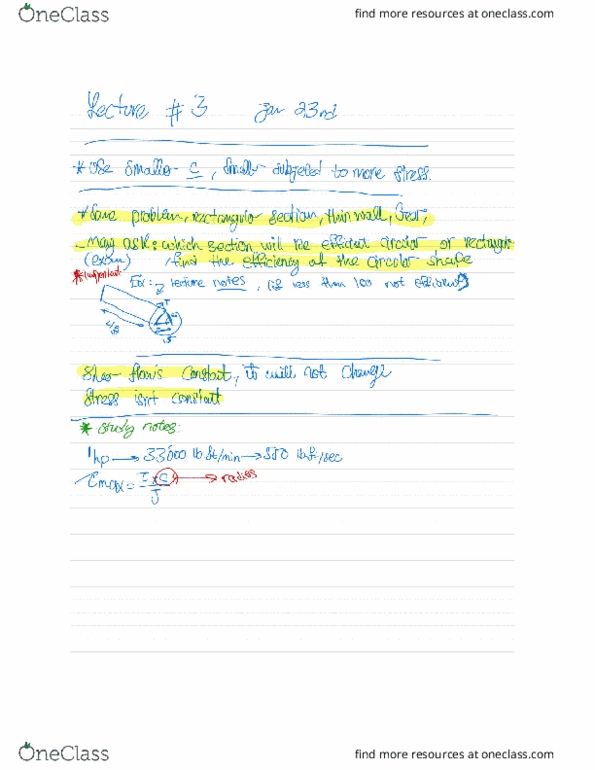 OneClass
find more resources at oneclass.com
Lecture # 3 Jan 23rd
* Use smaller c, small subjected to more stress.
* Save problem, rectangular section, thin wall, Gear,
- May ask: which section will be efficient circular or rectangle
(exam) , find the efficiency of the circular shape
* important
Ex: lecture notes, (if less than 100 not efficient)
T
48
1.5
Shear flow is constant, it will not change
Stress isn't constant
* Study notes:
1 hp → 33000 lb ft/min → 550 lb.ft/sec
τmax = T x c → radius
J
OneClass
find more resources at oneclass.com